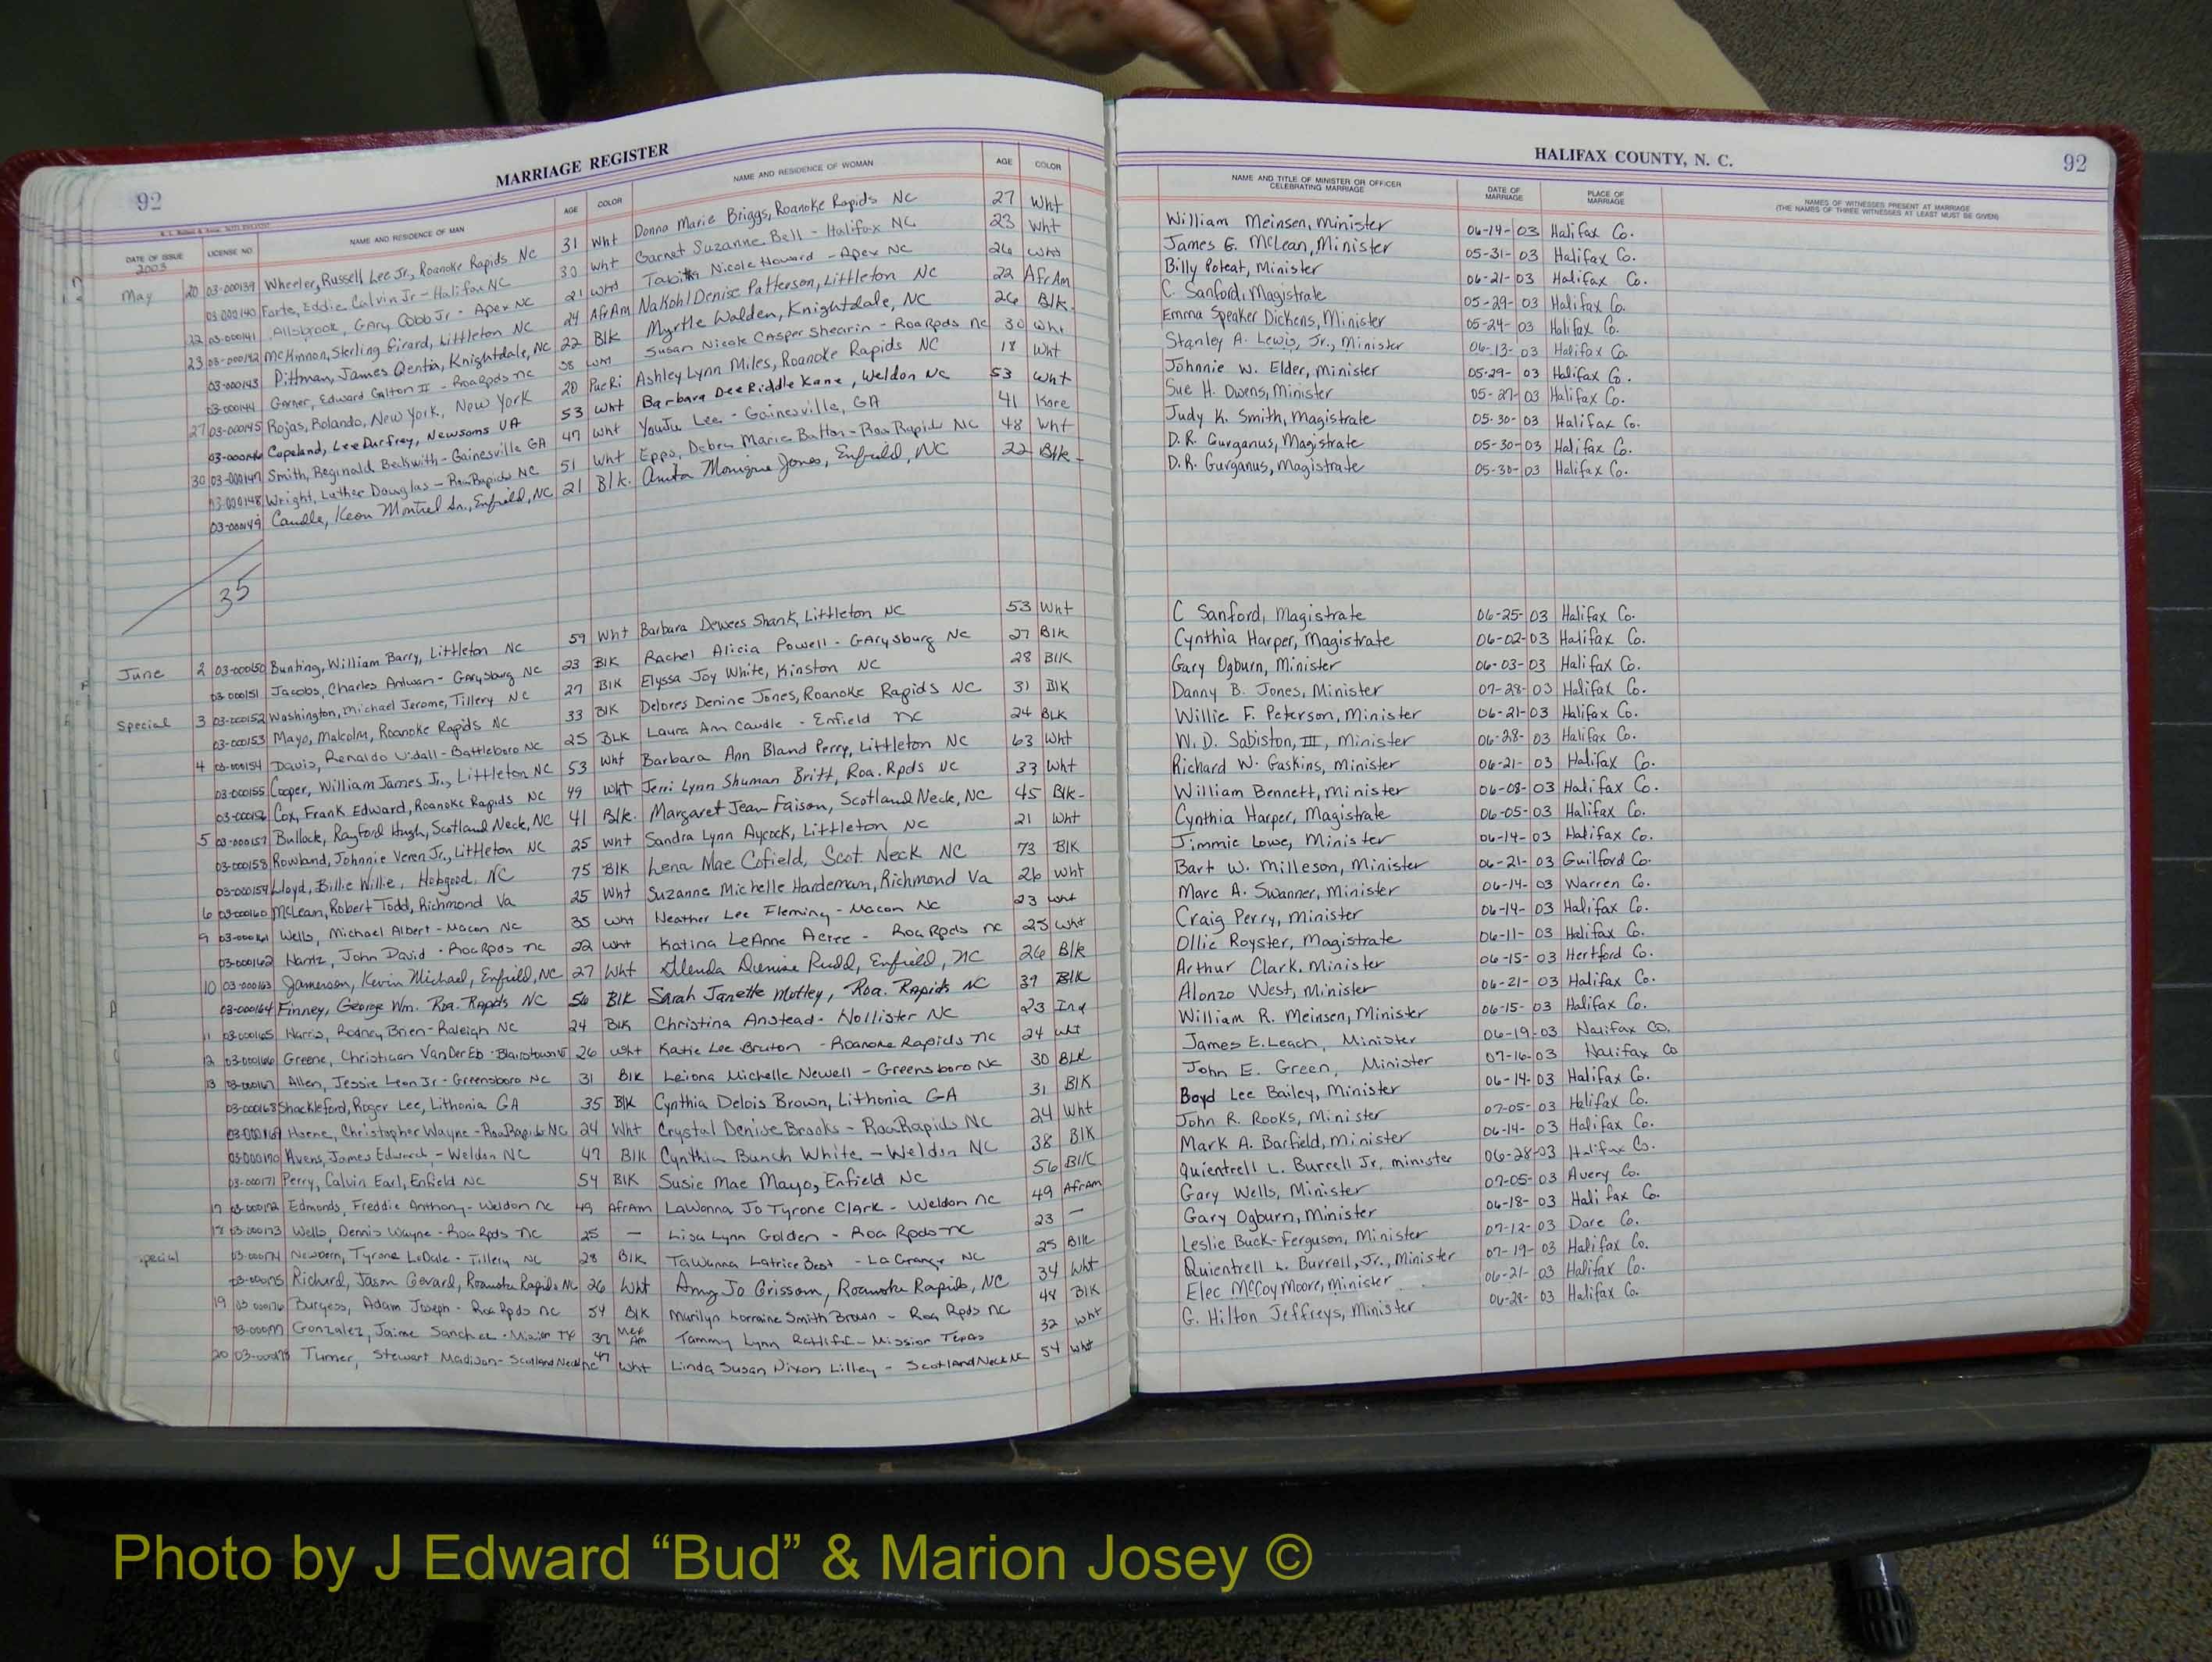 92
MARRIAGE REGISTER
DATE OF ISSUE
2003
LICENSE NO.
NAME AND RESIDENCE OF MAN
AGE
COLOR
NAME AND RESIDENCE OF WOMAN
AGE
COLOR
May 20 03-000139 Wheeler, Russell Lee Jr, Roanoke Rapids NC 31 Wht Donna Marie Briggs, Roanoke Rapids NC 27 Wht
03-000140 Forte, Eddie Calvin Jr - Halifax NC 30 Wht Garnet Suzanne Bell - Halifax NC 23 Wht
22 03-000141 Allsbrook, Gary Cobb Jr - Apex NC 21 Wht Tabitha Nicole Howard - Apex NC 26 Wht
23 03-000142 McKinnon, Sterling Girard, Littleton NC 24 AfrAm NaKohl Denise Patterson, Littleton NC 22 AfrAm
03-000143 Pittman, James Qentin, Knightdale, NC 22 Blk Myrtle Walden, Knightdale, NC 26 Blk.
03-000144 Garner, Edward Galton II - Roa Rpds NC 38 Wht Susan Nicole Casper Shearin - Roa Rpds NC 30 Wht
27 03-000145 Rojas, Rolando, New York, New York 20 PueRi Ashley Lynn Miles, Roanoke Rapids NC 18 Wht
03-000146 Copeland, Lee Durfrey, Newsoms VA 53 Wht Barbara Dee Riddle Kane, Weldon NC 53 Wht
30 03-000147 Smith, Reginald Beckwith - Gainesville GA 47 Wht YouJu Lee - Gainesville, GA 41 Kore
03-000148 Wright, Luther Douglas - Roa Rapids NC 51 Wht Epps, Debra Marie Batton - Roa Rapids NC 48 Wht
03-000149 Caudle, Keon Montrel Sr., Enfield, NC 21 Blk. Anita Monique Jones, Enfield, NC 22 Blk-
35
June 2 03-000150 Bunting, William Barry, Littleton NC 59 Wht Barbara Dewees Shank, Littleton NC 53 Wht
03-000151 Jacobs, Charles Antwan - Garysburg NC 23 Blk Rachel Alicia Powell - Garysburg NC 27 Blk
Special 3 03-000152 Washington, Michael Jerome, Tillery NC 27 Blk Elyssa Joy White, Kinston NC 28 Blk
03-000153 Mayo, Malcolm, Roanoke Rapids NC 33 Blk Delores Denine Jones, Roanoke Rapids NC 31 Blk
4 03-000154 Davis, Renaldo Udall - Battleboro NC 25 BLK Laura Ann Caudle - Enfield NC 24 BLK
03-000155 Cooper, William James Jr., Littleton NC 53 Wht Barbara Ann Bland Perry, Littleton NC 63 Wht
03-000156 Cox, Frank Edward, Roanoke Rapids NC 49 Wht Jerri Lynn Shuman Britt, Roa. Rpds NC 33 Wht
5 03-000157 Bullock, Rayford Hugh, Scotland Neck, NC 41 Blk. Margaret Jean Faison, Scotland Neck, NC 45 Blk-
03-000158 Rowland, Johnnie Veren Jr., Littleton NC 25 Wht Sandra Lynn Aycock, Littleton NC 21 Wht
03-000159 Lloyd, Billie Willie, Hobgood, NC 75 Blk Lena Mae Cofield, Scot. Neck NC 73 Blk
6 03-000160 McLean, Robert Todd, Richmond Va 25 Wht Suzanne Michelle Hardeman, Richmond Va 26 Wht
9 03-000161 Wells, Michael Albert - Macon NC 35 Wht Heather Lee Fleming - Macon NC 23 Wht
03-000162 Hantz, John David - Roa Rpds NC 22 Wht Katina LeAnne Acree - Roa Rpds NC 25 Wht
10 03-000163 Jamerson, Kevin Michael, Enfield, NC 27 Wht Denise Rudd, Enfield, NC 26 Blk
03-000164 Finney, George Wm. Roa. Rapids NC 56 Blk Sarah Janette Motley, Roa. Rapids NC 39 Blk
11 03-000165 Harris, Rodney Brien - Raleigh NC 24 Blk Christina Anstead - Hollister NC 23 Ind
12 03-000166 Greene, Christiaan VanDerEb - Blairstown 26 Wht Katie Lee Bruton - Roanoke Rapids NC 24 Wht
13 03-000167 Allen, Jessie Leon Jr - Greensboro NC 31 Blk Leiona Michelle Newell - Greensboro NC 30 BLK
03-000168 Shackleford, Roger Lee, Lithonia GA 35 Blk Cynthia Delois Brown, Lithonia GA 31 Blk
03-000169 Horne, Christopher Wayne - Roa Rapids NC 24 Wht Crystal Denise Brooks - Roa Rapids NC 24 Wht
03-000170 Avens, James Edward - Weldon NC 47 Blk Cynthia Bunch White - Weldon NC 38 Blk
03-000171 Perry, Calvin Earl, Enfield NC 54 Blk Susie Mae Mayo, Enfield NC 56 Blk
17 03-000172 Edmonds, Freddie Anthony - Weldon NC 49 AfrAm LaWonna Jo Tyrone Clark - Weldon NC 49 AfrAm
18 03-000173 Wells, Dennis Wayne - Roa Rpds NC 25 — Lisa Lynn Golden - Roa Rpds NC 23 —
special 03-000174 Newborn, Tyrone LeDale - Tillery NC 28 Blk Tawanna Latrice Best - La Grange NC 25 Blk
03-000175 Richard, Jason Gerard, Roanoke Rapids NC 26 Wht Amy Jo Grissom, Roanoke Rapids, NC 34 Wht
19 03-000176 Burgess, Adam Joseph - Roa Rpds NC 54 Blk Marilyn Lorraine Smith Brown - Roa Rpds NC 48 Blk
03-000177 Gonzalez, Jaime Sanchez - Mission TX 37 Mex Am Tammy Lynn Ratliff - Mission Texas 32 Wht
20 03-000178 Turner, Stewart Madison - Scotland Neck NC 47 Wht Linda Susan Dixon Lilley - Scotland Neck NC 54 Wht
HALIFAX COUNTY, N. C.
92
NAME AND TITLE OF MINISTER OR OFFICER
CELEBRATING MARRIAGE
DATE OF
MARRIAGE
PLACE OF
MARRIAGE
NAMES OF WITNESSES PRESENT AT MARRIAGE
(THE NAMES OF THREE WITNESSES AT LEAST MUST BE GIVEN)
William Meinsen, Minister 06-14-03 Halifax Co.
James E. McLean, Minister 05-31-03 Halifax Co.
Billy Poteat, Minister 06-21-03 Halifax Co.
C. Sanford, Magistrate 05-29-03 Halifax Co.
Emma Speaker Dickens, Minister 05-24-03 Halifax Co.
Stanley A. Lewis, Jr., Minister 06-13-03 Halifax Co.
Johnnie W. Elder, Minister 05-29-03 Halifax Co.
Sue H. Owens, Minister 05-27-03 Halifax Co.
Judy K. Smith, Magistrate 05-30-03 Halifax Co.
D.R. Gurganus, Magistrate 05-30-03 Halifax Co.
D.R. Gurganus, Magistrate 05-30-03 Halifax Co.
C Sanford, Magistrate 06-25-03 Halifax Co.
Cynthia Harper, Magistrate 06-02-03 Halifax Co.
Gary Ogburn, Minister 06-03-03 Halifax Co.
Danny B. Jones, Minister 07-28-03 Halifax Co.
Willie F. Peterson, Minister 06-21-03 Halifax Co.
W.D. Sabiston, III, Minister 06-28-03 Halifax Co.
Richard W. Gaskins, Minister 06-21-03 Halifax Co.
William Bennett, Minister 06-08-03 Halifax Co.
Cynthia Harper, Magistrate 06-05-03 Halifax Co.
Jimmie Lowe, Minister 06-14-03 Halifax Co.
Bart W. Milleson, Minister 06-21-03 Guilford Co.
Marc A. Swanner, Minister 06-14-03 Warren Co.
Craig Perry, Minister 06-14-03 Halifax Co.
Ollie Royster, Magistrate 06-11-03 Halifax Co.
Arthur Clark, Minister 06-15-03 Hertford Co.
Alonzo West, Minister 06-21-03 Halifax Co.
William R. Meinsen, Minister 06-15-03 Halifax Co.
James E. Leach, Minister 06-19-03 Halifax Co.
John E. Green, Minister 07-16-03 Halifax Co
Boyd Lee Bailey, Minister 06-14-03 Halifax Co.
John R. Rooks, Minister 07-05-03 Halifax Co.
Mark A. Barfield, Minister 06-14-03 Halifax Co.
Quientrell L. Burrell Jr, minister 06-28-03 Halifax Co.
Gary Wells, Minister 07-05-03 Avery Co.
Gary Ogburn, Minister 06-18-03 Halifax Co.
Leslie Buck-Ferguson, Minister 07-12-03 Dare Co.
Quientrell L. Burrell, Jr., Minister 07-19-03 Halifax Co.
Elec McCoy Moore, Minister 06-21-03 Halifax Co.
G. Hilton Jeffreys, Minister 06-28-03 Halifax Co.
Photo by J Edward “Bud” & Marion Josey ©